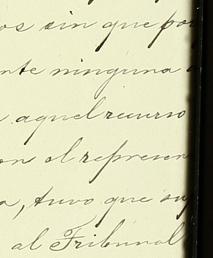 os sin que por
nte ninguna
aquel recurso
on el represen
a, tuvo que su
al Tribunal